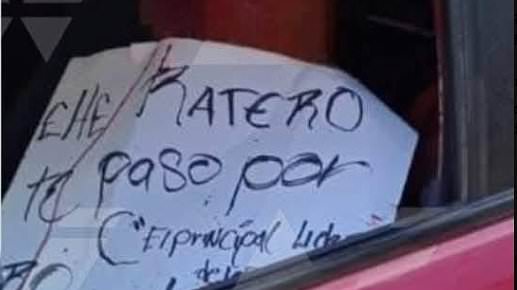 EHE RATERO
TE paso por
C "El principal Lide
de
RO